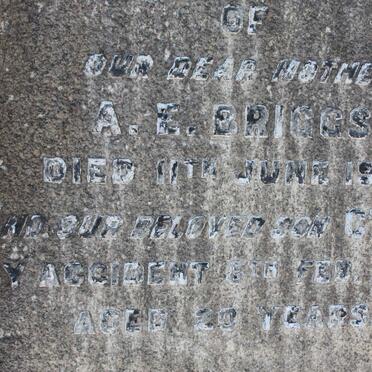 OF
OUR DEAR MOTHE
A. E. BRIGGS
DIED 11TH JUNE 19
ND OUR BELOVED SON C
Y ACCIDENT 6TH FEB
AGED 29 YEARS